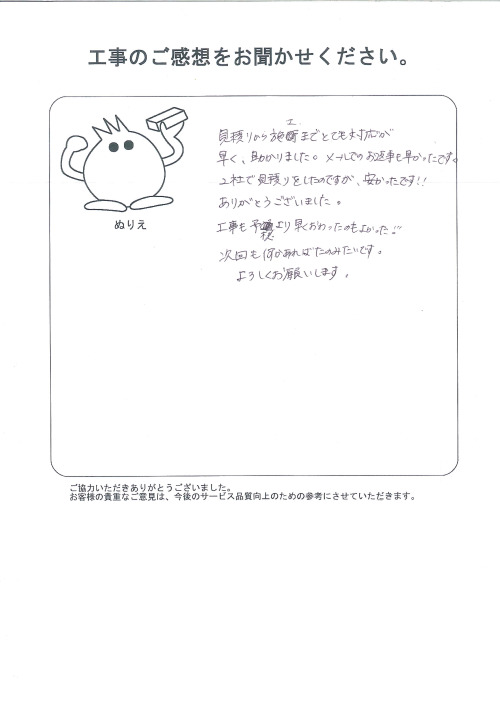 工事のご感想をお聞かせください。
ぬりえ
見積りから施工までとても対応が
早く、助かりました。メールでのお返事も早かったです。
2社で見積りをしたのですが、安かったです!!
ありがとうございました。
工事も予定より早くおわったのもよかった!!
次回も何かあればたのみたいです。
よろしくお願いします。
ご協力いただきありがとうございました。
お客様の貴重なご意見は、今後のサービス品質向上のための参考にさせていただきます。